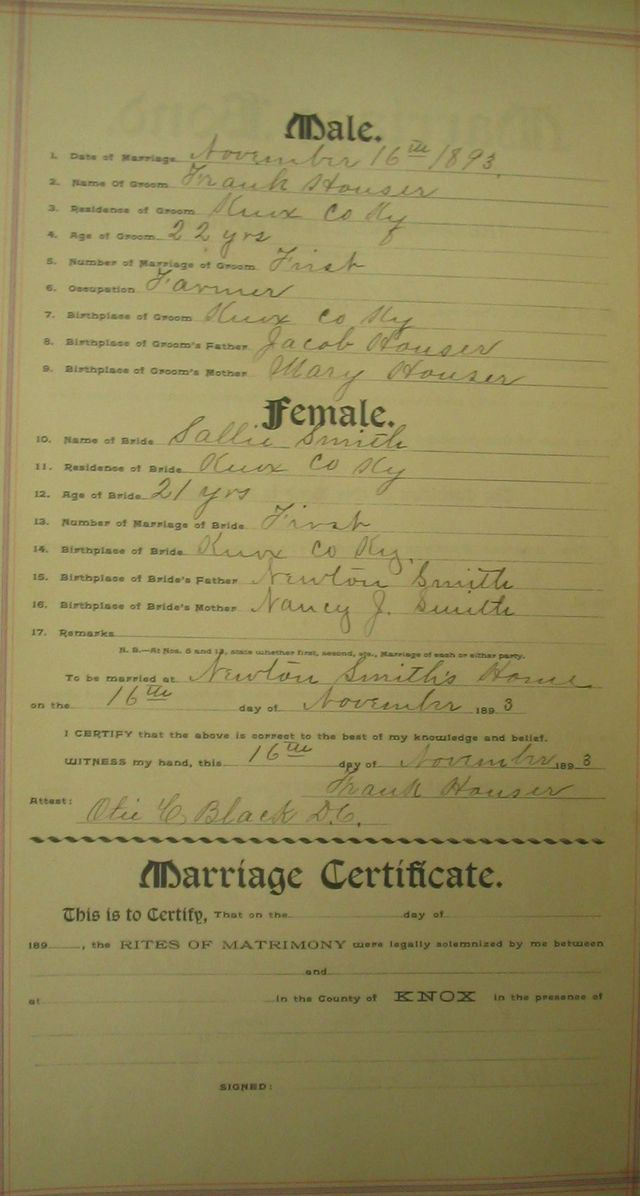 Male.
1. Date of Marriage November 16th 1893
2. Name Of Groom Frank Houser
3. Residence of Groom Knox Co Ky
4. Age of Groom 22 yrs
5. Number of Marriage of Groom First
6. Occupation Farmer
7. Birthplace of Groom Knox Co Ky
8. Birthplace of Groom's Father Jacob Houser
9. Birthplace of Groom's Mother Mary Houser
Female.
10. Name of Bride Sallie Smith
11. Residence of Bride Knox Co Ky
12. Age of Bride 21 yrs
13. Number of Marriage of Bride First
14. Birthplace of Bride Knox Co Ky.
15. Birthplace of Bride's Father Newton Smith
16. Birthplace of Bride's Mother Nancy J. Smith
17. Remarks
N. B.—At Nos. 5 and 13, state whether first, second, etc., Marriage of each or either party.
To be married at Newton Smith's Home
on the 16th day of November 1893
I CERTIFY that the above is correct to the best of my knowledge and belief.
WITNESS my hand, this 16th day of November 1893
Frank Houser
Attest: Otie C Black D.C.
Marriage Certificate.
This is to Certify, That on the day of
189 , the RITES OF MATRIMONY were legally solemnized by me between
and
at in the County of KNOX in the presence of
SIGNED: